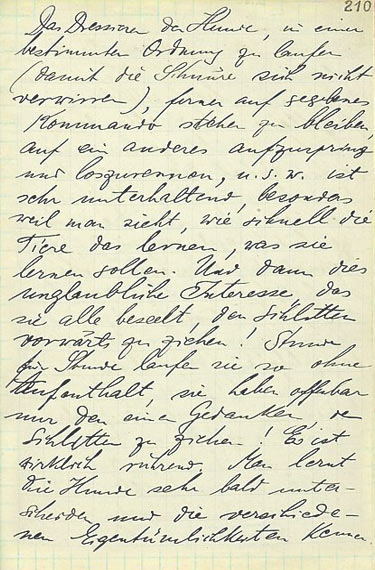 210
Das Dressieren der Hunde, in einer
bestimmten Ordnung zu laufen
(damit die Schnüre sich nicht
verwirren), ferner auf gegebenes
Kommando stehen zu bleiben,
auf ein anderes aufzuspring
und loszurennen, u.s.w. ist
sehr unterhaltend, besonders
weil man sieht, wie schnell die
Tiere das lernen, was sie
lernen sollen. Und dann dies
unglaubliche Interesse, das
sie alle beseelt, den Schlitten
vorwärts zu ziehen! Stunde
für Stunde laufen sie so ohne
Aufenthalt, sie haben offenbar
nur den einen Gedanken, de
Schlitten zu ziehen! Es ist
wirklich rührend. Man lernt
die Hunde sehr bald unter-
scheiden und die verschiede-
nen Eigentümlichkeiten kennen.